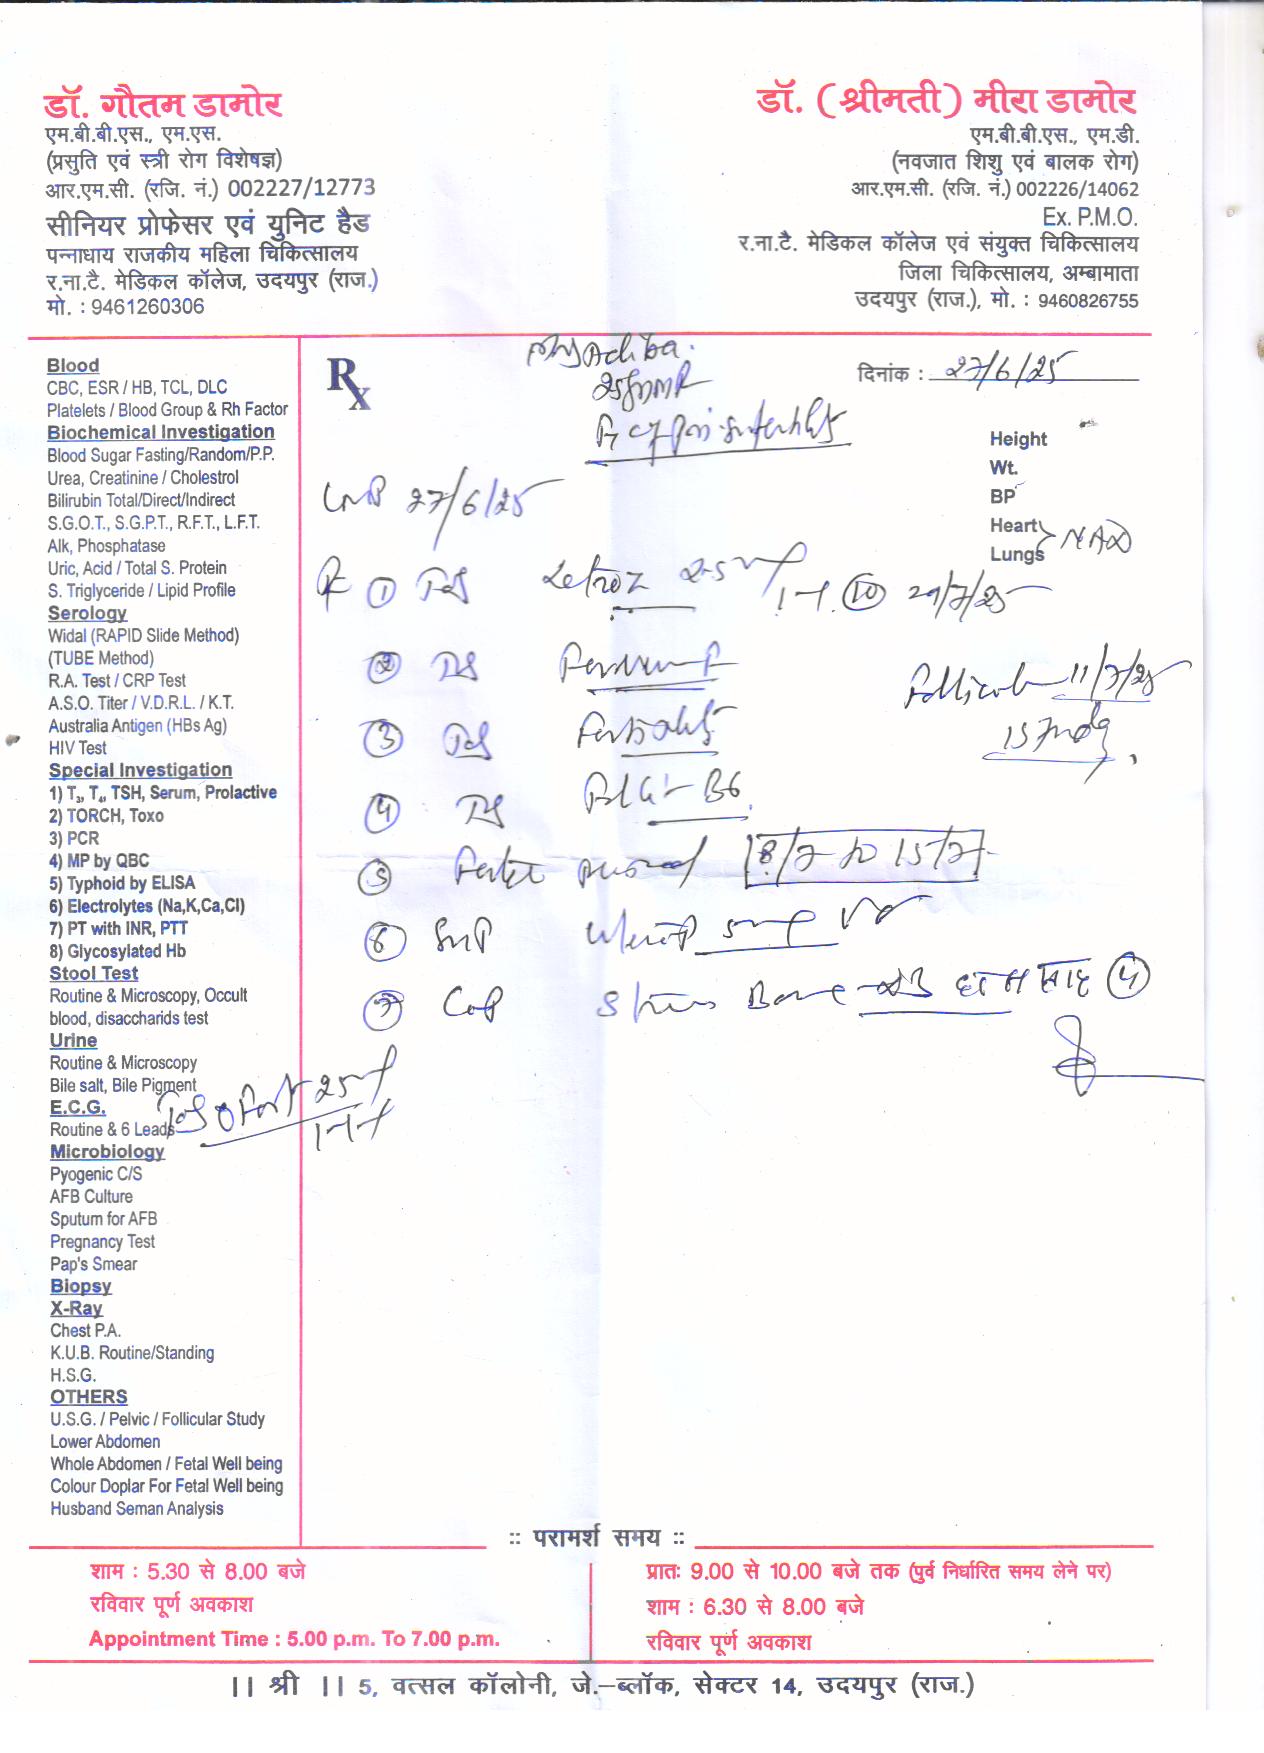 डॉ. गौतम डामोर
एम.बी.बी.एस., एम.एस.
(प्रसुति एवं स्त्री रोग विशेषज्ञ)
आर.एम.सी. (रजि. नं.) 002227/12773
सीनियर प्रोफेसर एवं युनिट हैड
पन्नाधाय राजकीय महिला चिकित्सालय
र.ना.टै. मेडिकल कॉलेज, उदयपुर (राज.)
मो. : 9461260306
डॉ. (श्रीमती) मीरा डामोर
एम.बी.बी.एस., एम.डी.
(नवजात शिशु एवं बालक रोग)
आर.एम.सी. (रजि. नं.) 002226/14062
Ex. P.M.O.
र.ना.टै. मेडिकल कॉलेज एवं संयुक्त चिकित्सालय
जिला चिकित्सालय, अम्बामाता
उदयपुर (राज.), मो. : 9460826755
Blood
CBC, ESR / HB, TCL, DLC
Platelets / Blood Group & Rh Factor
Biochemical Investigation
Blood Sugar Fasting/Random/P.P.
Urea, Creatinine / Cholestrol
Bilirubin Total/Direct/Indirect
S.G.O.T., S.G.P.T., R.F.T., L.F.T.
Alk, Phosphatase
Uric, Acid / Total S. Protein
S. Triglyceride / Lipid Profile
Serology
Widal (RAPID Slide Method)
(TUBE Method)
R.A. Test / CRP Test
A.S.O. Titer / V.D.R.L. / K.T.
Australia Antigen (HBs Ag)
HIV Test
Special Investigation
1) T₃, T₄, TSH, Serum, Prolactive
2) TORCH, Toxo
3) PCR
4) MP by QBC
5) Typhoid by ELISA
6) Electrolytes (Na,K,Ca,Cl)
7) PT with INR, PTT
8) Glycosylated Hb
Stool Test
Routine & Microscopy, Occult
blood, disaccharids test
Urine
Routine & Microscopy
Bile salt, Bile Pigment
E.C.G.
Routine & 6 Leads
Microbiology
Pyogenic C/S
AFB Culture
Sputum for AFB
Pregnancy Test
Pap's Smear
Biopsy
X-Ray
Chest P.A.
K.U.B. Routine/Standing
H.S.G.
OTHERS
U.S.G. / Pelvic / Follicular Study
Lower Abdomen
Whole Abdomen / Fetal Well being
Colour Doplar For Fetal Well being
Husband Seman Analysis
Rx
दिनांक : 27/6/25
Height
Wt.
BP
Heart
Lungs NAD
LMP 27/6/25
① Letroz 2.5
②
11/7/25
③
④ B6
⑤ 8/7 to 15/7
⑥
⑦ Cap
:: परामर्श समय ::
शाम : 5.30 से 8.00 बजे
रविवार पूर्ण अवकाश
Appointment Time : 5.00 p.m. To 7.00 p.m.
प्रातः 9.00 से 10.00 बजे तक (पुर्व निर्धारित समय लेने पर)
शाम : 6.30 से 8.00 बजे
रविवार पूर्ण अवकाश
|| श्री || 5, वत्सल कॉलोनी, जे.-ब्लॉक, सेक्टर 14, उदयपुर (राज.)